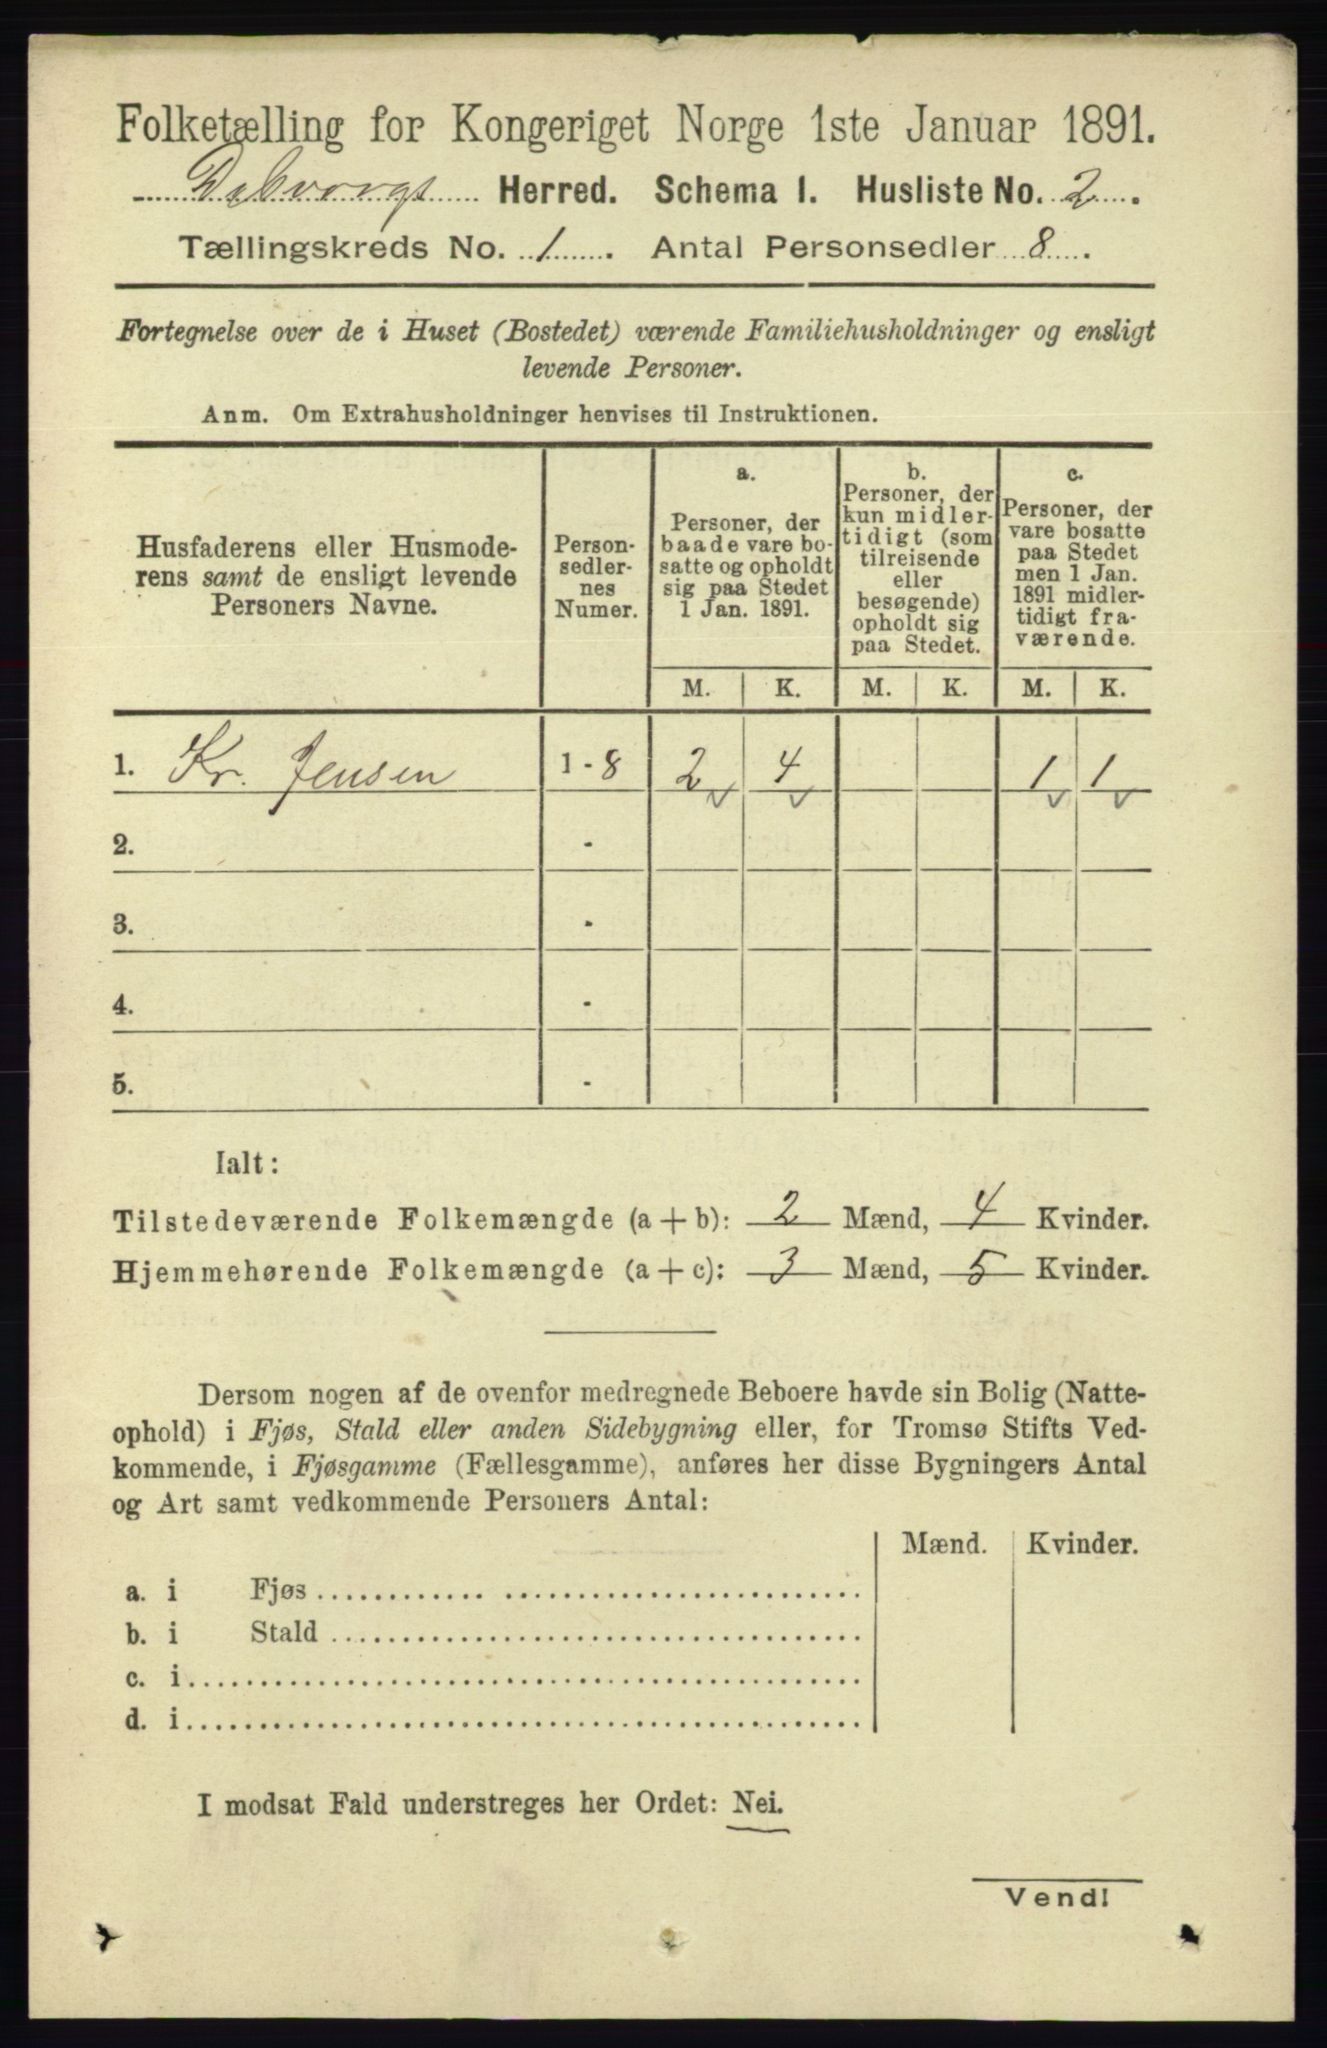 Folketælling for Kongeriget Norge 1ste Januar 1891.
Herred. Schema I. Husliste No. 2.
Tællingskreds No. 1. Antal Personsedler 8.
Fortegnelse over de i Huset (Bostedet) værende Familiehusholdninger og ensligt
levende Personer.
Anm. Om Extrahusholdninger henvises til Instruktionen.
Husfaderens eller Husmode-
rens samt de ensligt levende
Personers Navne.
Person-
sedler-
nes
Numer.
a.
Personer, der
baade vare bo-
satte og opholdt
sig paa Stedet
1 Jan. 1891.
b.
Personer, der
kun midler-
tidigt (som
tilreisende
eller
besøgende)
opholdt sig
paa Stedet.
c.
Personer, der
vare bosatte
paa Stedet
men 1 Jan.
1891 midler-
tidigt fra-
værende.
M. K. M. K. M. K.
1. Kr. Jensen 1-8 2 4 1 1
2. -
3. -
4. -
5. -
Ialt:
Tilstedeværende Folkemængde (a+b): 2 Mænd, 4 Kvinder.
Hjemmehørende Folkemængde (a+c): 3 Mænd, 5 Kvinder.
Dersom nogen af de ovenfor medregnede Beboere havde sin Bolig (Natte-
ophold) i Fjøs, Stald eller anden Sidebygning eller, for Tromsø Stifts Ved-
kommende, i Fjøsgamme (Fællesgamme), anføres her disse Bygningers Antal
og Art samt vedkommende Personers Antal:
Mænd. Kvinder.
a. i Fjøs
b. i Stald
c. i
d. i
I modsat Fald understreges her Ordet: Nei.
Vend!